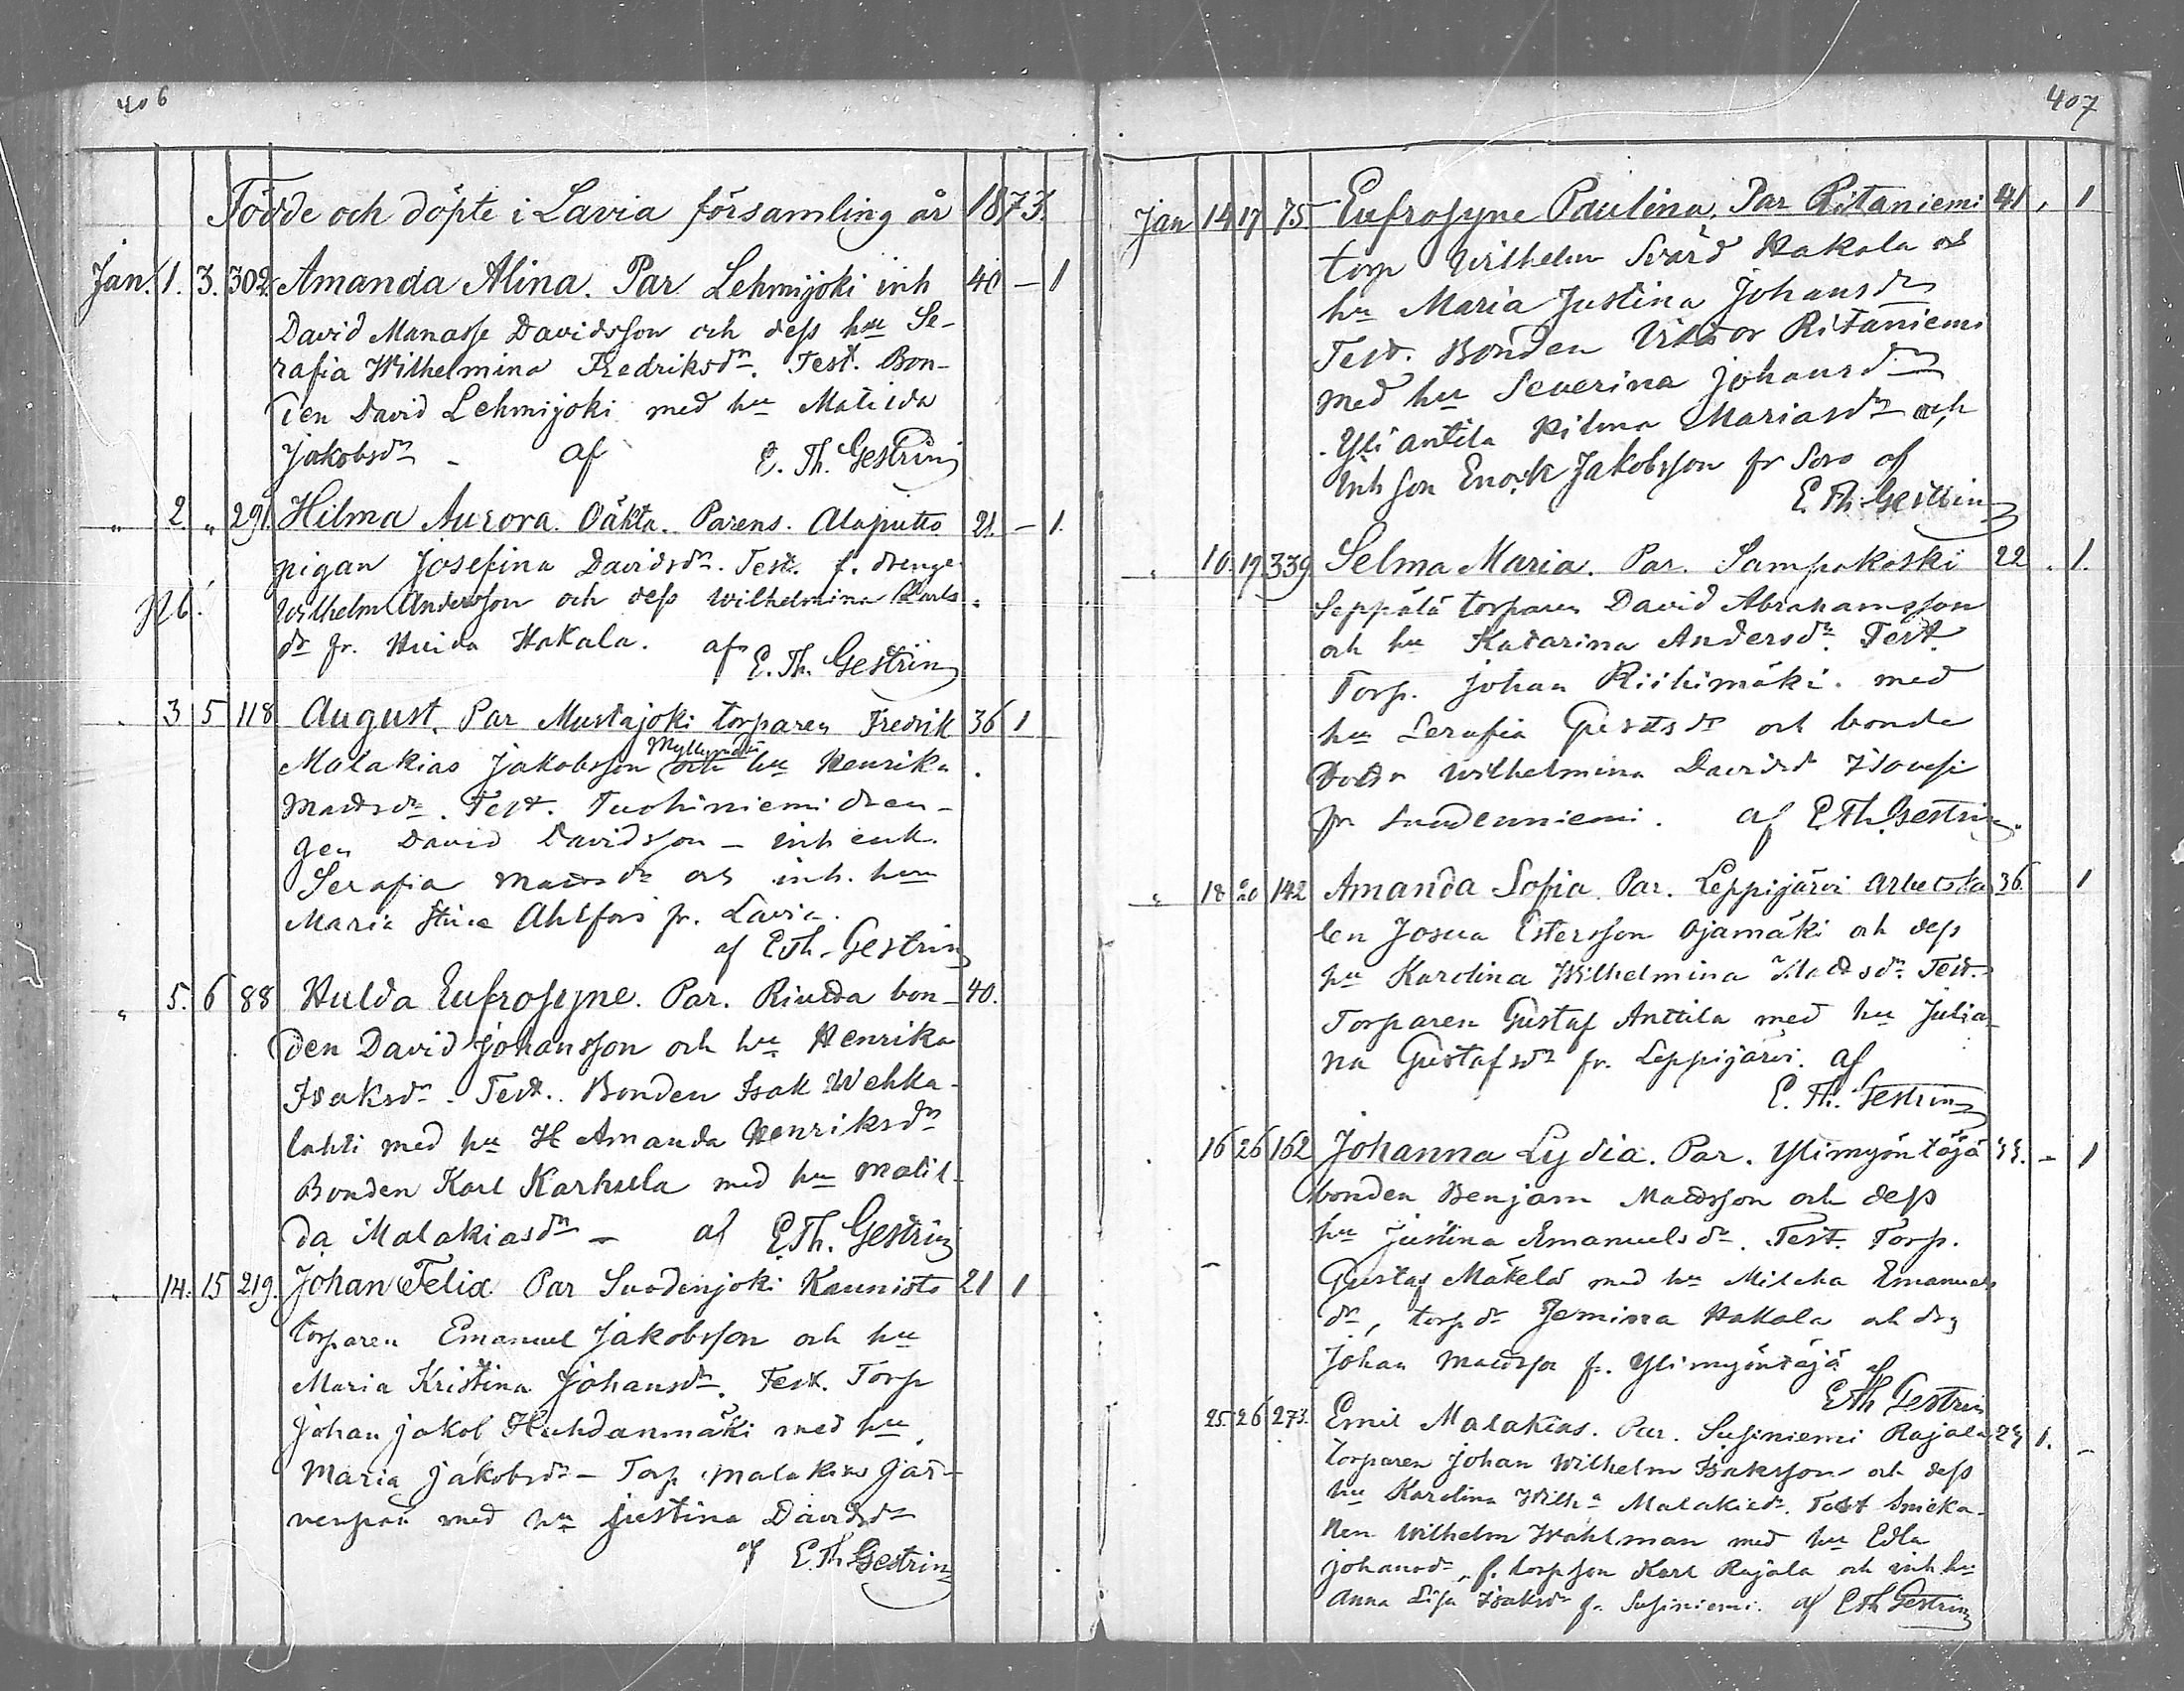 406
Födde och döpte i Lavia församling år 1873.
Jan. 1. 3. 302. Amanda Alina. Par Lehmijoki inh 40 — 1
David Manasse Davidsson och dess hu Se-
rafia Wilhelmina Fredriksdr. Test. Bon-
den David Lehmijoki med hu Matilda
Jakobsdr - af E. Th. Gestrin
" 2. " 291. Hilma Aurora. Oäkta. Parens. Alaputto 21. — 1.
pigan Josefina Davidsdr. Test. f. drenge
Wilhelm Andersson och dess Wilhelmina Karls
dr fr. Hakala. af E. Th. Gestrin
" 3 5 118 August. Par Mustajoki torparen Fredrik 36 1
Myllymäki
Malakias Jakobsson och hu Henrika
Mattsdr. Test. Tuohiniemi dren-
gen David Davidsson - inh enk.
Serafia Mattsdr och inh. hu
Maria Stina Ahlfors fr. Lavia.
af E Th. Gestrin
" 5. 6 88 Hulda Eufrosyne. Par. Riudda bon- 40.
den David Johansson och hu Henrika
Isaksdr. Test. Bonden Isak Wehka-
lahti med hu H Amanda Henriksdr
Bonden Karl Karhula med hu Matil-
da Malakiasdr - af E Th. Gestrin
" 14. 15 219. Johan Felix Par Suodenjoki Kaunisto 21 1
torparen Emanuel Jakobsson och hu
Maria Kristina Johansdr. Test. Torp
Johan Jakob Huhdanmäki med hu
Maria Jakobsdr - Torp Malakias Jär-
venpää med hu Justina Davidsdr
af E. Th Gestrin
407
Jan 14 17 75 Eufrosyne Paulina. Par Ritaniemi 41 , 1
torp Wilhelm Svärd Hakala och
hu Maria Justina Johansdr
Test. Bonden Viktor Ritaniemi
med hu Severina Johansdr
Yliantila Hilma Mariasdr och
inh son Enok Jakobsson fr af
E. Th. Gestrin
" 10. 19 339 Selma Maria. Par. Sampakoski 22 . 1.
Seppälä torparen David Abrahamsson
och hu Katarina Andersdr. Test.
Torp. Johan Riihimäki. med
hu Serafia Gustsdr och bonde
dottr Wilhelmina Davidsdr
fr Suodenniemi. af E. Th. Gestrin.
" 18 20 142 Amanda Sofia. Par. Leppijärvi arbetska 36. 1
len Josua Estersson Ojamäki och dess
hu Karolina Wilhelmina Mattsdr. Test.
Torparen Gustaf Anttila med hu Julia-
na Gustafsdr fr. Leppijärvi. af
E. Th. Gestrin
16 26 162 Johanna Lydia. Par. Ylimyöntäjä - 1
bonden Benjam Mattsson och dess
hu Justina Emanuelsdr. Test. Torp.
Gustaf Mäkelä med hu Milcha Emanuels
dr, torp dr Jemina Hakala och drg
Johan Mattsson fr. Ylimyöntäjä af
E Th Gestrin
25. 26 273. Emil Malakias. Par. Susiniemi Rajala 1. -
torparen Johan Wilhelm Isaksson och dess
hu Karolina Wilha Malakiasdr. Test Snicka-
ren Wilhelm Wahlman med hu Edla
Johansdr, f. torp son Karl Rajala och inh hu
Anna Lisa Isaksdr fr. Susiniemi. af E Th Gestrin